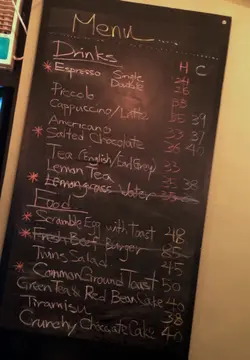 Menu
Drinks H C
*Espresso Single 24
Double 26
Piccolo 33
Cappuccino/Latte 35 39
Americano 33 37
*Salted Chocolate 36 40
Tea (English/Earl Grey) 33
Lemon Tea 35 38
*Lemongrass Water
Food
*Scramble Egg with toast 48
*Fresh Beef Burger 85
Twins Salad 45
*Common Ground Toast 50
Green Tea & Red Bean Cake 40
Tiramisu 38
Crunchy Chocolate Cake 40